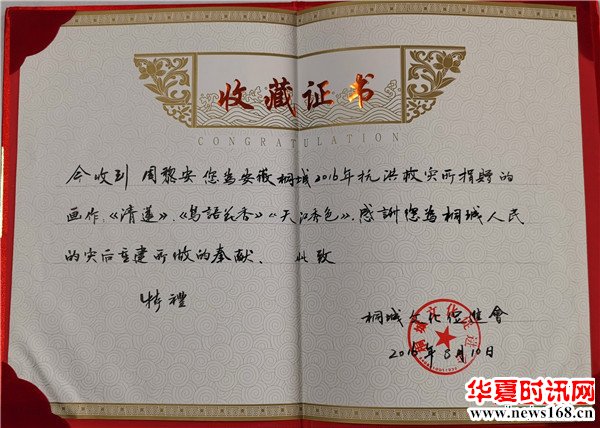 收藏证书
CONGRATULATION
今收到 周黎安您为安徽桐城2016年抗洪救灾所捐赠的
画作《清莲》、《鸟語花香》《天江秀色》，感謝您为桐城人民
的灾后重建所做的奉献、 此致
特禮
桐城文化促進會
2016年8月10日
华夏时讯网
www.news168.cn